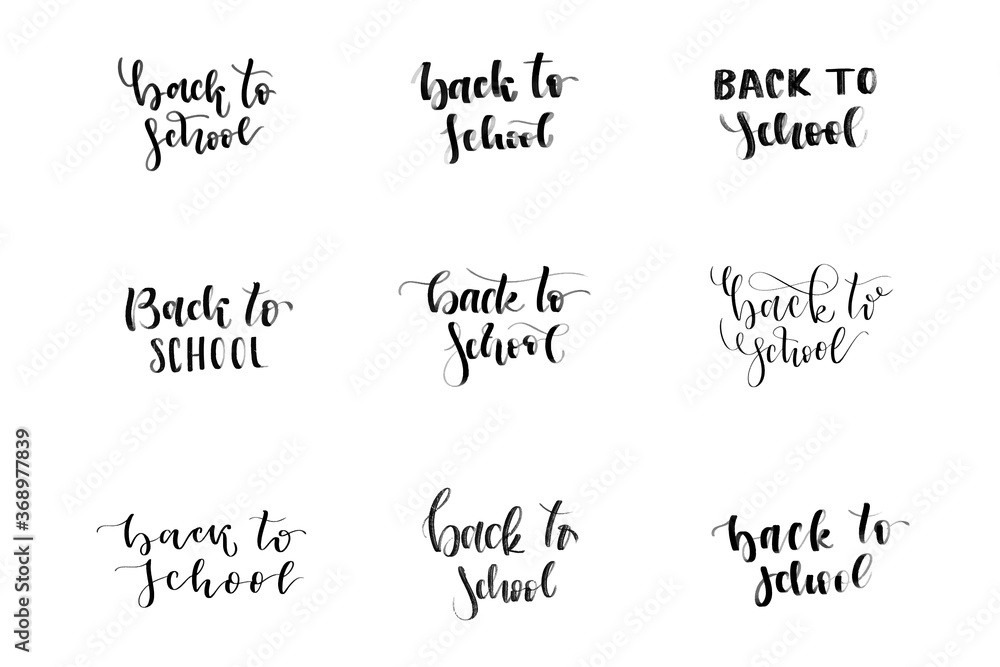 back to
school
back to
school
BACK TO
school
Back to
SCHOOL
back to
school
back to
school
back to
school
back to
school
back to
school
Adobe Stock | #368977839